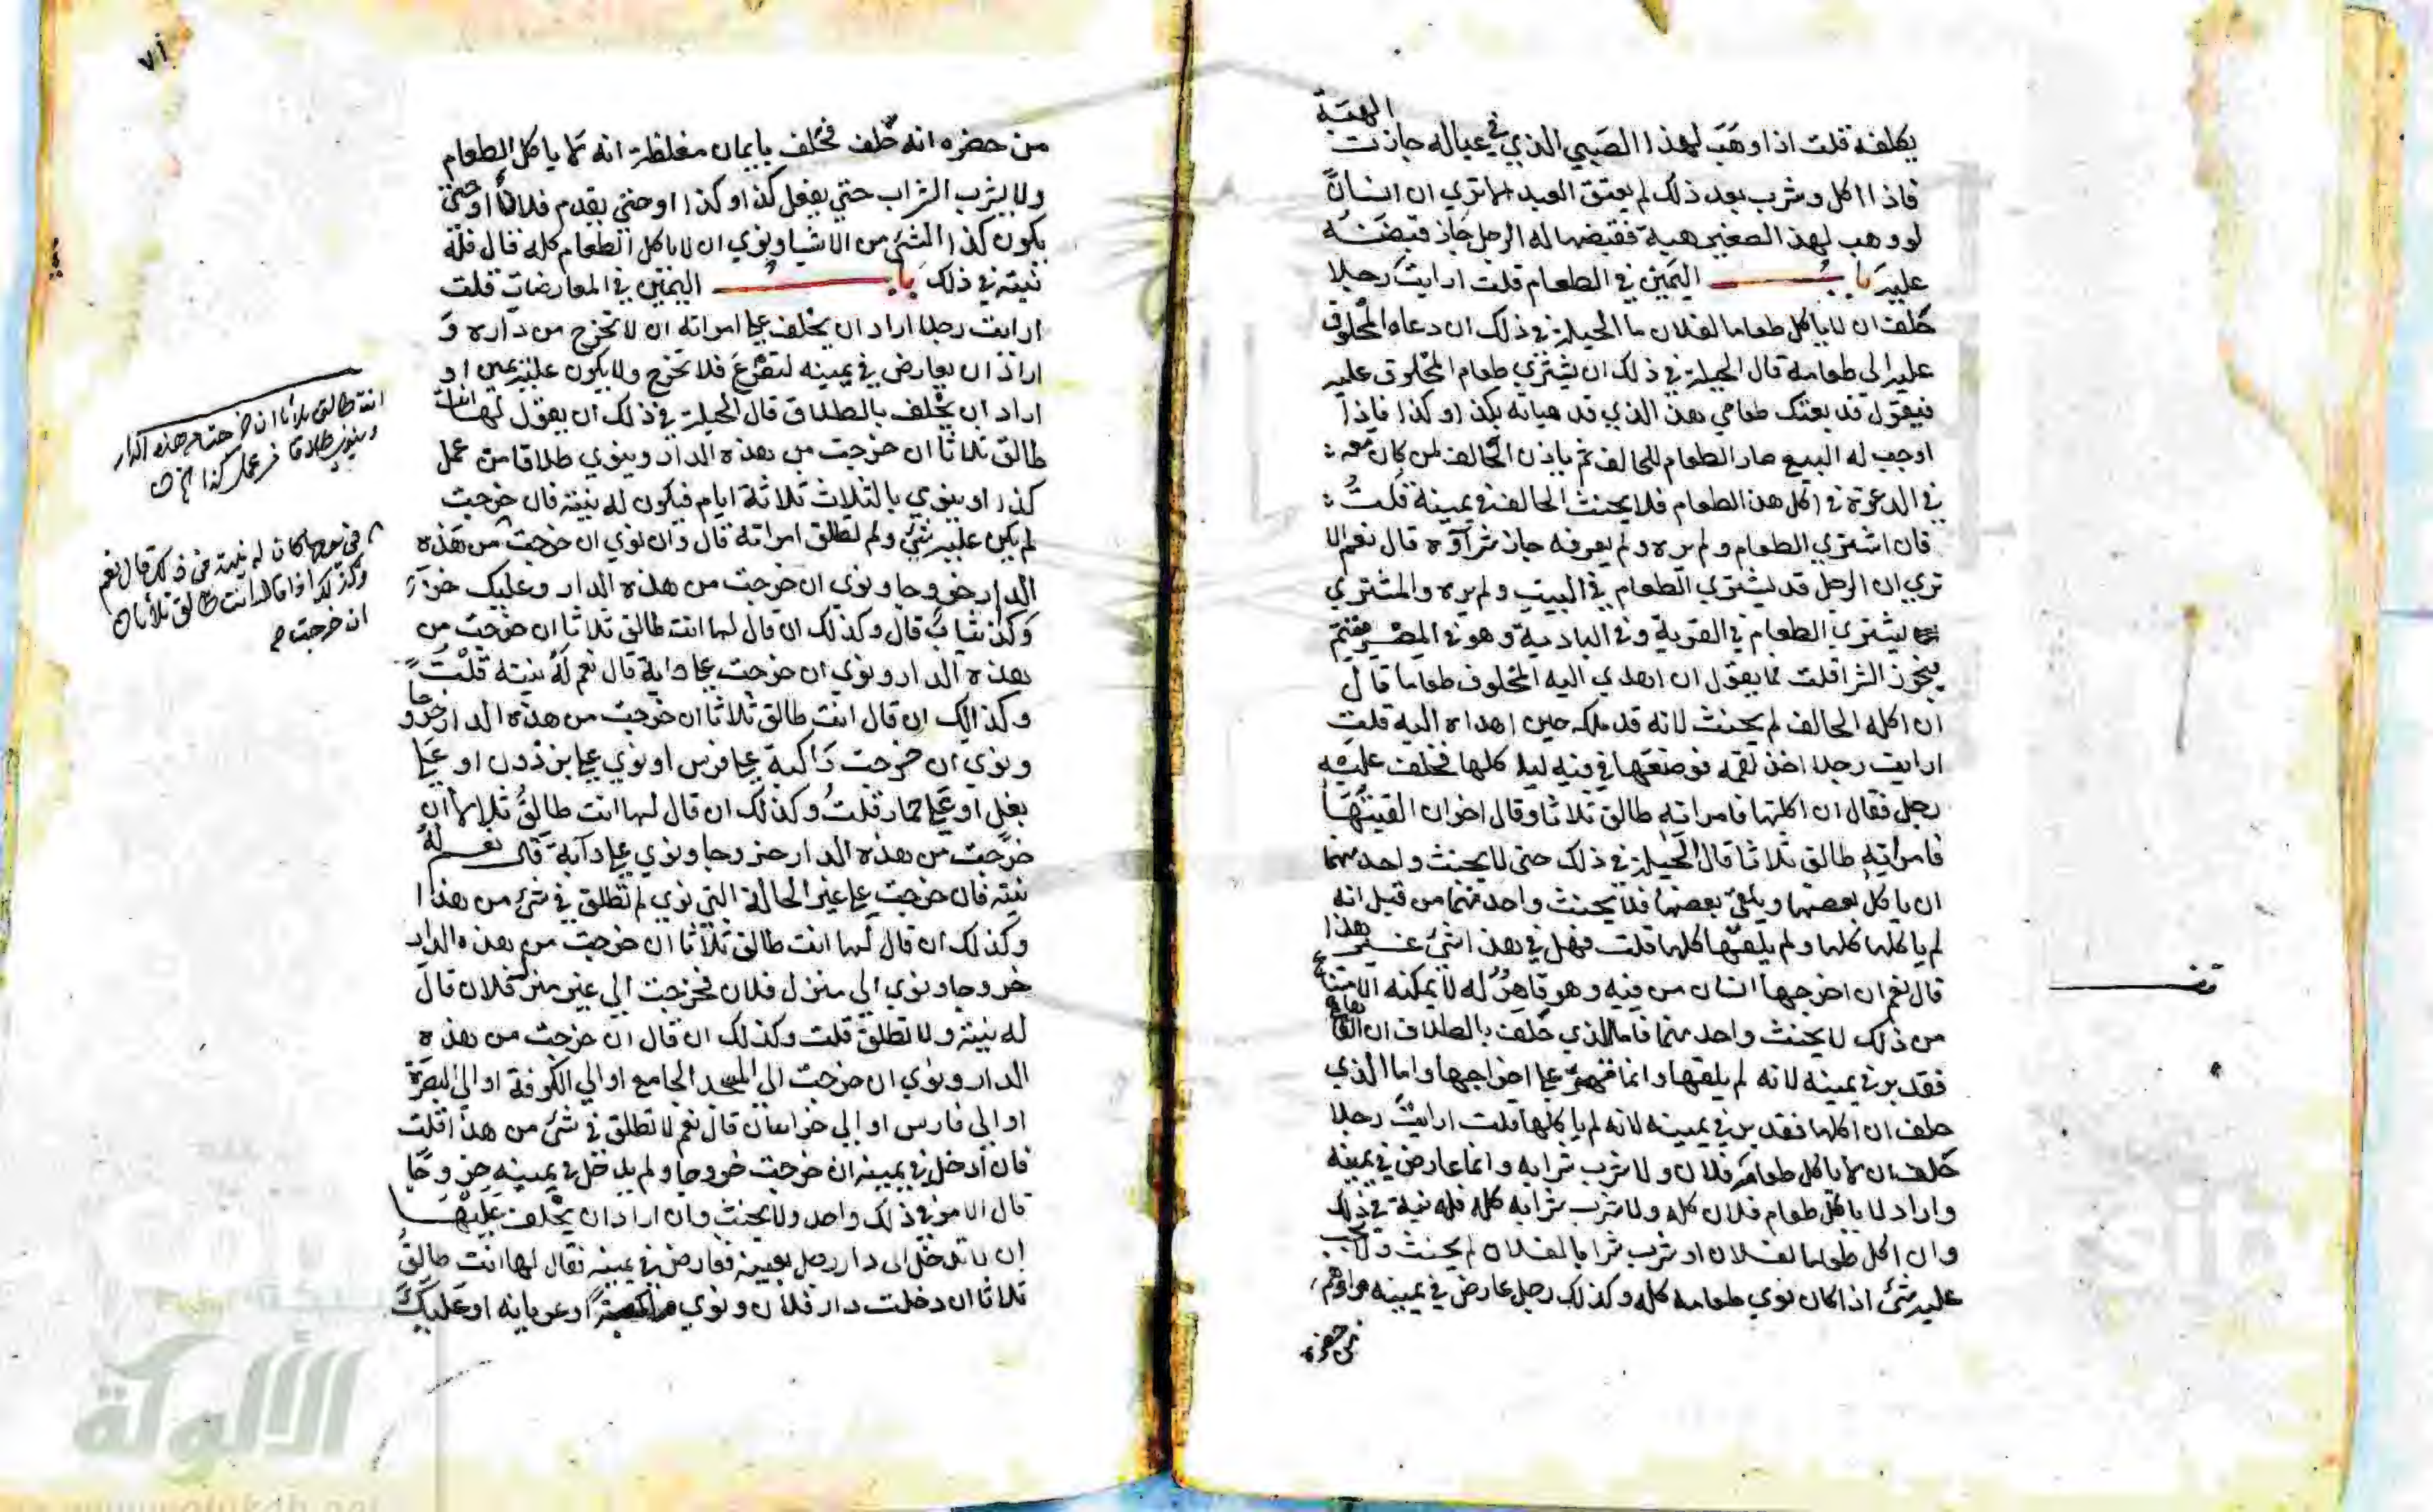 الهبة
يكلفه قلت اذا وهب لهذا الصبي الذي في عياله جازت
فاذا اكل وشرب بعد ذلك لم يعتق العبد الا تري ان انسانًا
لو وهب لهذ الصغير هبة فقبضها له الرجل جاز قبضه
عليه باب اليمين في الطعام قلت ارايت رجلا
حلف ان لا ياكل طعاما لفلان ما الحيلة في ذلك ان دعاه المحلوف
عليه الي طعامه قال الحيلة في ذلك ان يشتري طعام المحلوف عليه
فيقول قد بعتك طعامي هذ الذي قد هياته بكذا وكذا فاذا
اوجب له البيع صار الطعام للحالف ثم ياذن الحالف لمن كان معه
في الدعوة في اكل هذ الطعام فلا يحنث الحالف في يمينه قلت
فان اشتري الطعام ولم يره ولم يعرفه جاز شراوه قال نعم الا
تري ان الرجل قد يشتري الطعام في البيت ولم يره والمشتري
يشتري الطعام في القرية وفي البادية وهو في المصر
الشرا قلت فما يقول ان اهدي اليه المحلوف طعاما قال
ان اكله الحالف لم يحنث لانه قد ملكه حين اهداه اليه قلت
ارايت رجلا اخذ لقمة فوضعها في فيه لياكلها فحلف عليه
رجل فقال ان اكلتها فامراته طالق ثلاثا وقال اخر ان القيتها
فامراته طالق ثلاثا قال الحيلة في ذلك حتي لا يحنث واحد منهما
ان ياكل بعضها ويلقي بعضها فلا يحنث واحد منهما من قبل انه
لم ياكلها كلها ولم يلقها كلها قلت فهل في هذ اشئ غير هذا
قال نعم ان اخرجها انسان من فيه وهو قاهر له لا يمكنه الامتناع
من ذلك لا يحنث واحد منهما فاما الذي حلف بالطلاق ان القاها
فقد بر في يمينه لانه لم يلقها وانما قهر علي اخراجها واما الذي
حلف ان اكلها فقد بر في يمينه لانه لم ياكلها قلت ارايت رجلا
حلف ان لا ياكل طعام فلان ولا شرب شرابه وانما عارض في يمينه
واراد لا ياكل طعام فلان كله ولا شرب شرابه كله فله نية في ذلك
وان اكل طعاما لفلان او شرب شرابا لفلان لم يحنث ولا يجب
عليه شئ اذا كان نوي طعامه كله وكذلك رجل عارض في يمينه
من حضره
٧١
من حضره انه حلف فحلف بايمان مغلظة انه لا ياكل الطعام
ولا يشرب الشراب حتي يفعل كذا وكذا او حتي يقدم فلانًا او حتي
يكون كذا الشئ من الاشيا ونوي ان لا ياكل الطعام كله قال فله
نيته في ذلك باب اليمين في المعارضات قلت
ارايت رجلا اراد ان يحلف علي امراته ان لا تخرج من داره و
اراد ان يعارض في يمينه لتفزع فلا تخرج ولا يكون عليه يمين او
اراد ان يحلف بالطلاق قال الحيلة في ذلك ان يقول لها انت
طالق ثلاثا ان خرجت من هذه الدار وينوي طلاقا من عمل
كذا او ينوي بالثلاث ثلاثة ايام فيكون له نيته فان خرجت
لم يكن عليه شئ ولم تطلق امراته قال وان نوي ان خرجت من هذه
الدار خروجا ونوي ان خرجت من هذه الدار وعليك خز
وكذ ثياب قال وكذلك ان قال لها انت طالق ثلاثا ان خرجت من
هذه الدار ونوي ان خرجت علي دابة قال نعم له نيته قلت
وكذالك ان قال انت طالق ثلاثا ان خرجت من هذه الدار خروجا
ونوي ان خرجت راكبة علي فرس او نوي علي برذون او علي
بغل او علي حمار قلت وكذلك ان قال لها انت طالق ثلاثا ان
خرجت من هذه الدار خروجا ونوي علي دابة قال نعم له
نيته فان خرجت علي غير الحالة التي نوي لم تطلق في شئ من هذا
وكذلك ان قال لها انت طالق ثلاثا ان خرجت من هذه الدار
خروجا ونوي الي منزل فلان فخرجت الي غير منزل فلان قال
له نيته ولا تطلق قلت وكذلك ان قال ان خرجت من هذه
الدار ونوي ان خرجت الي المسجد الجامع او الي الكوفة او الي البصرة
او الي فارس او الي خراسان قال نعم لا تطلق في شئ من هذا قلت
فان ادخل في يمينه ان خرجت خروجا ولم يدخل في يمينه خروجا
قال الامر في ذلك واحد ولا يحنث وان اراد ان يحلف عليها
ان لا تدخل الي دار رجل بعينه فعارض في يمينه فقال لها انت طالق
ثلاثا ان دخلت دار فلان ونوي او عريانه او عليك
انت طالق ثلاثا ان خرجت من هذه الدار
وينوي طلاقا من عمل كذا
كان له نيته في ذلك قال نعم
وكذلك اذا قال انت طالق ثلاثا
ان خرجت
الألوكة